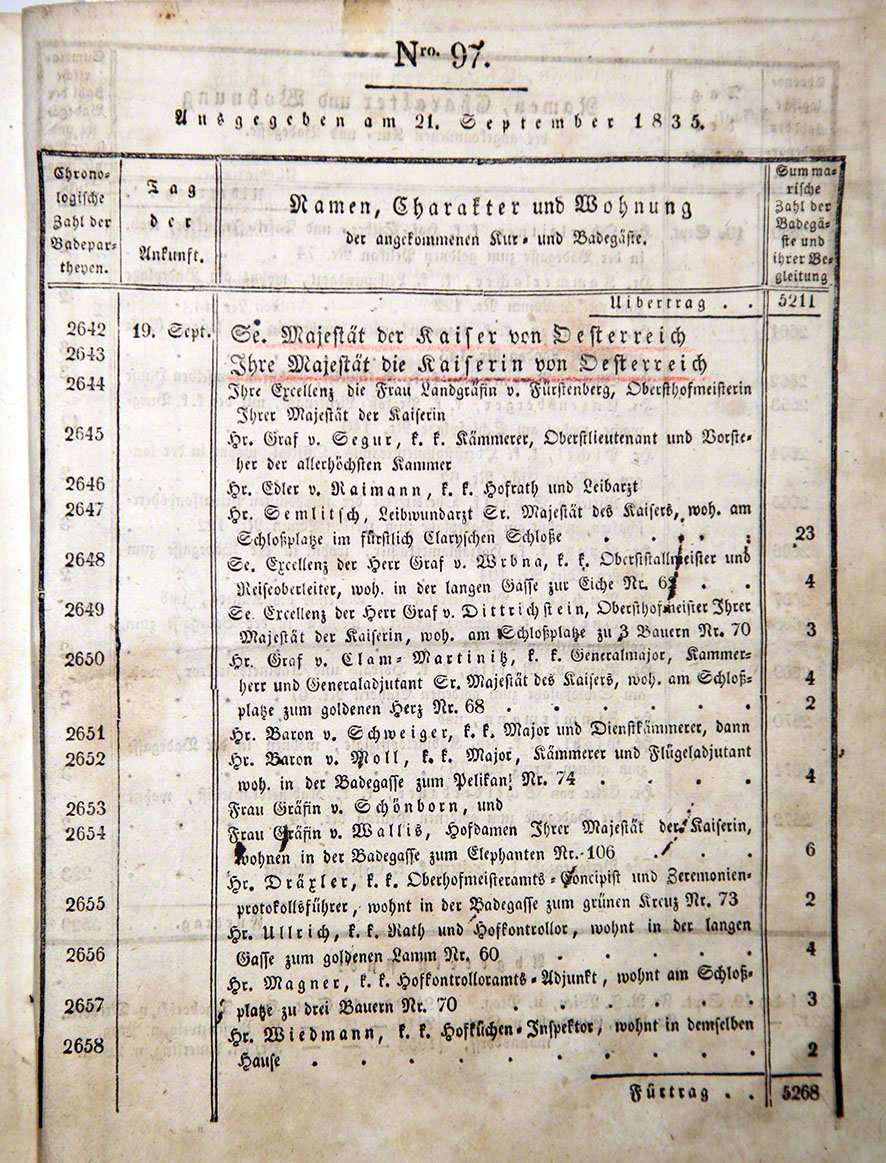 Nro. 97.
Ausgegeben am 21. September 1835.
Chrono-
logische
Zahl der
Badepar-
theyen.
Tag
der
Ankunft.
Namen, Charakter und Wohnung
der angekommenen Kur- und Badegäste.
Summa-
rische
Zahl der
Badegä-
ste und
ihrer Be-
gleitung
Uibertrag . . 5211
2642 19. Sept. Se. Majestät der Kaiser von Oesterreich
2643 Ihre Majestät die Kaiserin von Oesterreich
2644 Ihre Excellenz die Frau Landgräfin v. Fürstenberg, Obersthofmeisterin
Ihrer Majestät der Kaiserin
2645 Hr. Graf v. Segur, k. k. Kämmerer, Oberstlieutenant und Vorste-
her der allerhöchsten Kammer
2646 Hr. Edler v. Raimann, k. k. Hofrath und Leibarzt
2647 Hr. Semlitsch, Leibwundarzt Sr. Majestät des Kaisers, woh. am
Schloßplatze im fürstlich Claryschen Schloße . . . . 23
2648 Se. Excellenz der Herr Graf v. Wrbna, k. k. Oberststallmeister und
Reiseoberleiter, woh. in der langen Gasse zur Eiche Nr. . . 4
2649 Se. Excellenz der Herr Graf v. Dittrichstein, Obersthofmeister Ihrer
Majestät der Kaiserin, woh. am Schloßplatze zu 3 Bauern Nr. 70 3
2650 Hr. Graf v. Clam-Martinitz, k. k. Generalmajor, Kammer-
herr und Generaladjutant Sr. Majestät des Kaisers, woh. am Schloß- 4
platze zum goldenen Herz Nr. 68 . . . . . . 2
2651 Hr. Baron v. Schweiger, k. k. Major und Dienstkämmerer, dann
2652 Hr. Baron v. Moll, k. k. Major, Kämmerer und Flügeladjutant
woh. in der Badegasse zum Pelikan! Nr. 74 . . . 4
2653 Frau Gräfin v. Schönborn, und
2654 Frau Gräfin v. Wallis, Hofdamen Ihrer Majestät der Kaiserin,
wohnen in der Badegasse zum Elephanten Nr. 106 . . 6
Hr. Dräxler, k. k. Oberhofmeisteramts-Concipist und Zeremonien-
2655 protokollsführer, wohnt in der Badegasse zum grünen Kreuz Nr. 73 2
Hr. Ullrich, k. k. Rath und Hofkontrollor, wohnt in der langen
2656 Gasse zum goldenen Lamm Nr. 60 . . . . . 4
Hr. Magner, k. k. Hofkontrolloramts-Adjunkt, wohnt am Schloß-
2657 platze zu drei Bauern Nr. 70 . . . . . . 3
2658 Hr. Wiedmann, k. k. Hofküchen-Inspektor, wohnt in demselben
Hause . . . . . . . . . 2
Fürtrag . . 5268